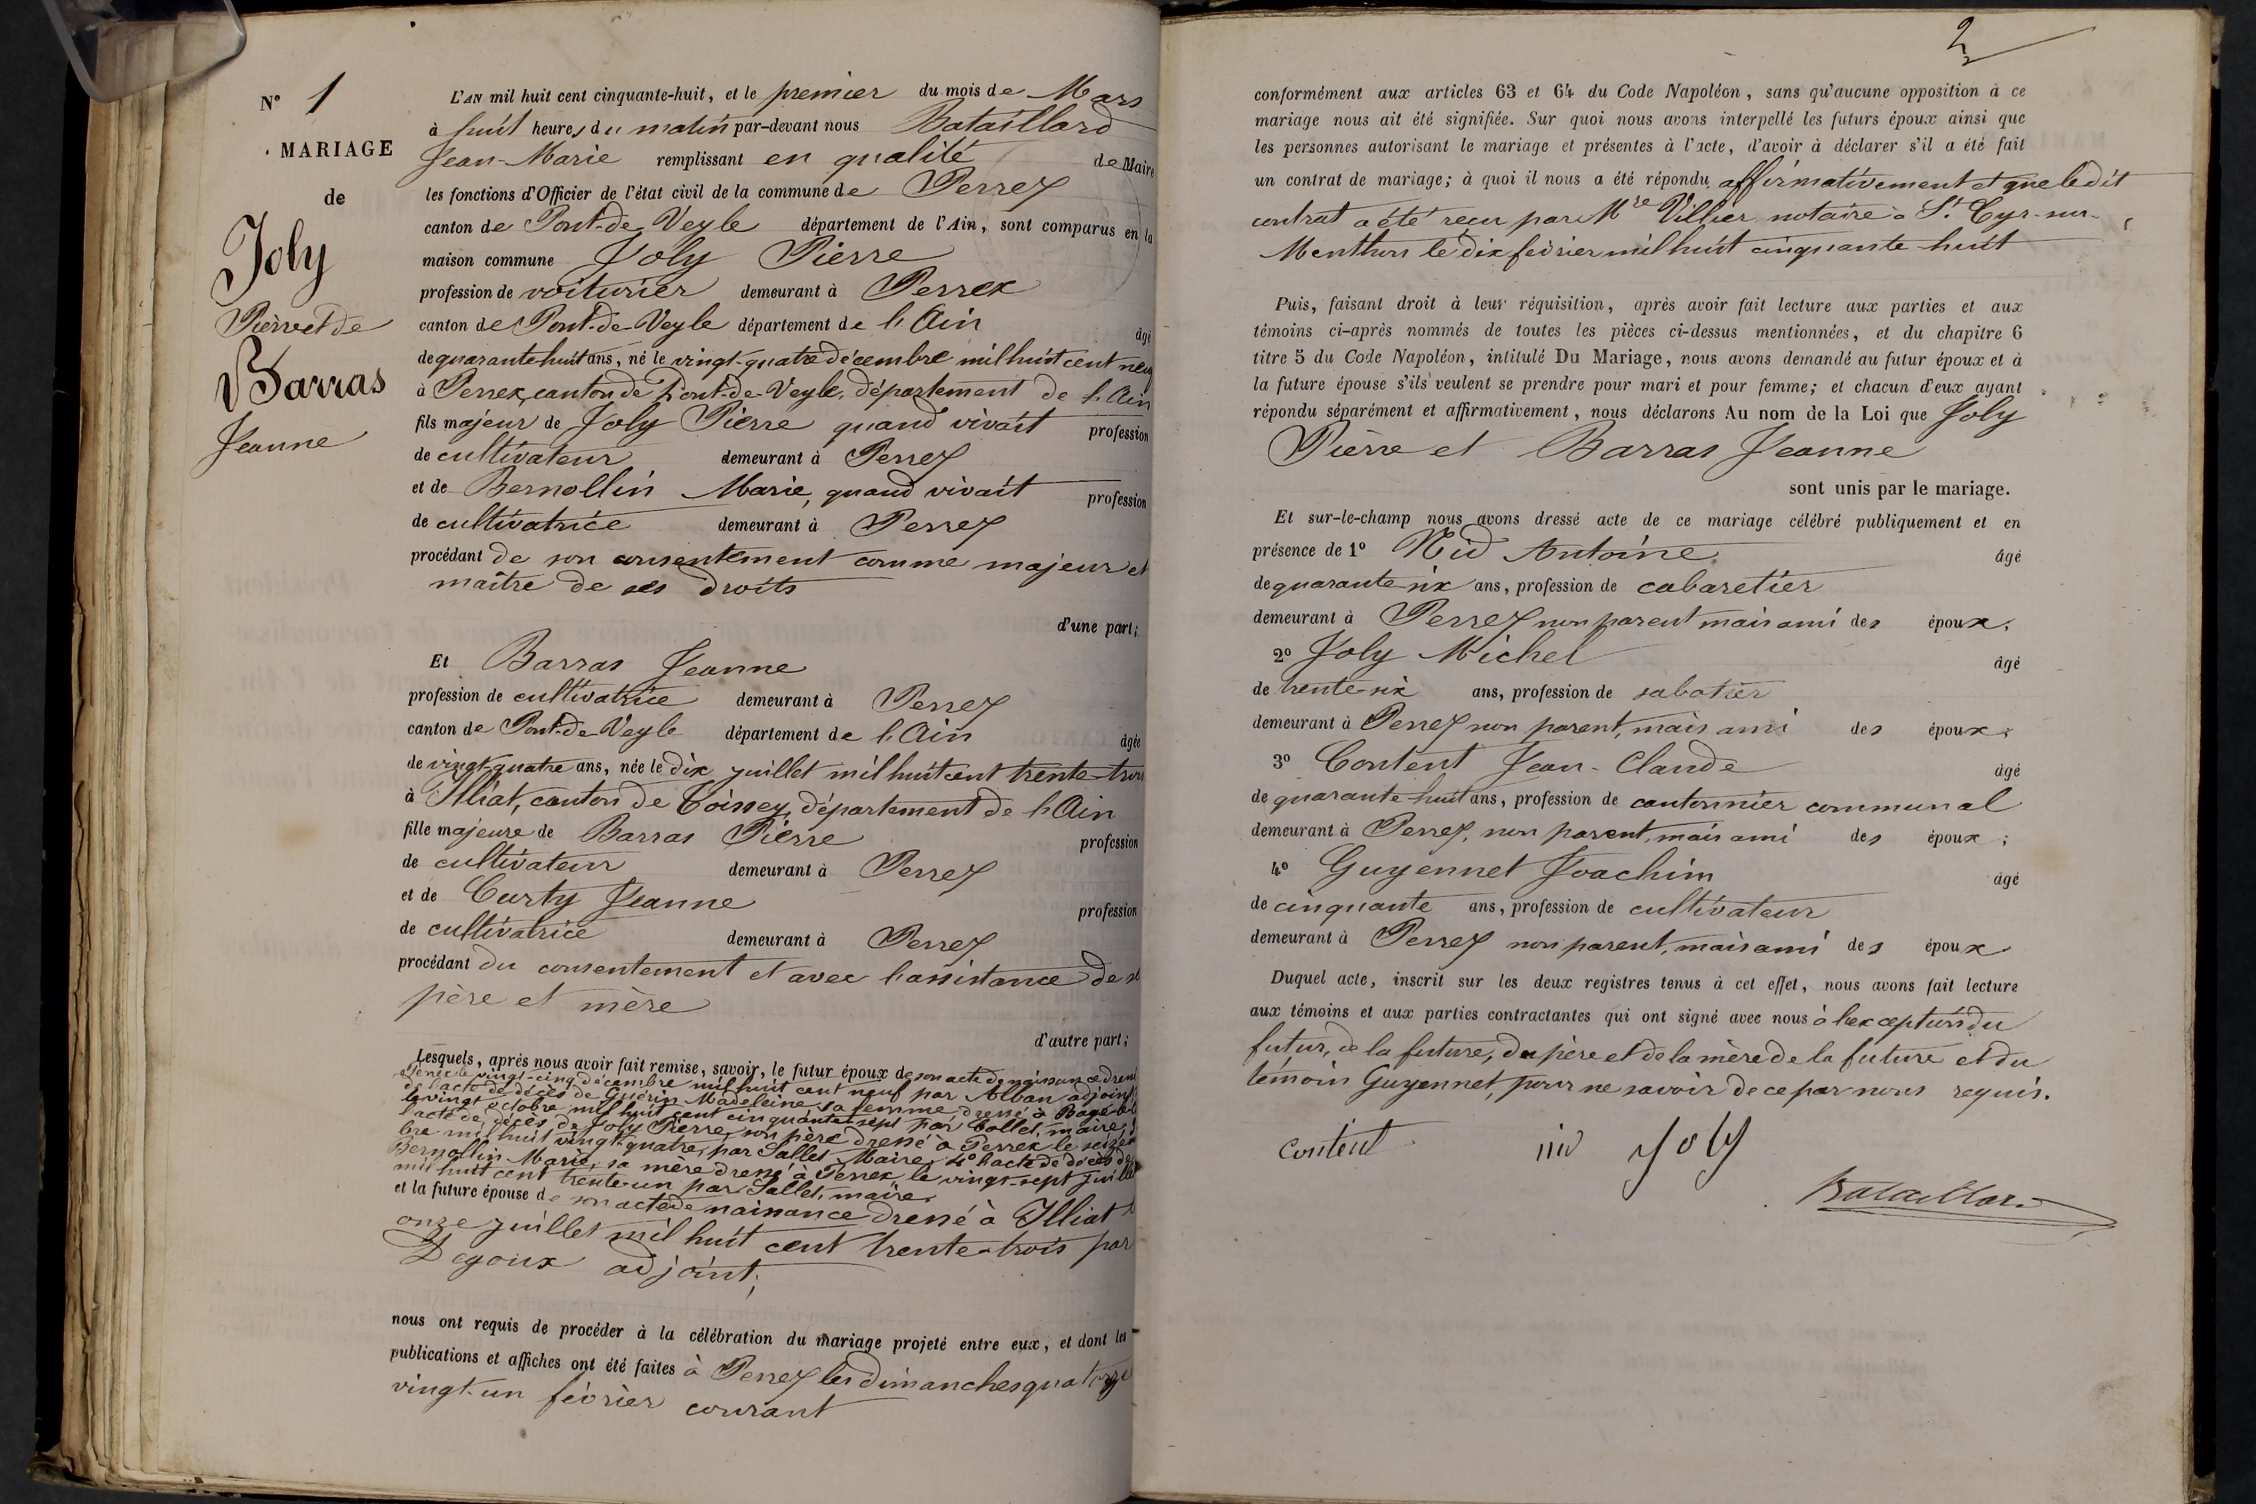 N° 1
MARIAGE
de
Joly
Pierre et de
Barras
Jeanne
L'AN mil huit cent cinquante-huit, et le premier du mois de Mars
à huit heures du matin par-devant nous Bataillard
Jean-Marie remplissant en qualité de Maire
les fonctions d'Officier de l'état civil de la commune de Perrex
canton de Pont-de-Veyle département de l'Ain, sont comparus en la
maison commune Joly Pierre
profession de voiturier demeurant à Perrex
canton de Pont-de-Veyle département de l'Ain âgé
de quarante huit ans, né le vingt-quatre décembre mil huit cent neuf
à Perrex, canton de Pont-de-Veyle, département de l'Ain
fils majeur de Joly Pierre quand vivait profession
de cultivateur demeurant à Perrex
et de Bernollin Marie, quand vivait profession
de cultivatrice demeurant à Perrex
procédant de son consentement comme majeur et
maître de ses droits
d'une part;
Et Barras Jeanne
profession de cultivatrice demeurant à Perrex
canton de Pont-de-Veyle département de l'Ain âgée
de vingt-quatre ans, née le dix juillet mil huit cent trente-trois
à Illiat, canton de Toissey, département de l'Ain
fille majeure de Barras Pierre profession
de cultivateur demeurant à Perrex
et de Curty Jeanne profession
de cultivatrice demeurant à Perrex
procédant du consentement et avec l'assistance de se
père et mère
d'autre part;
Lesquels, après nous avoir fait remise, savoir, le futur époux de son acte de naissance dressé
à Perrex le vingt-cinq décembre mil huit cent neuf par Alban adjoint
de l'acte de décès de Guérin Madeleine sa femme dressé à Bagé-le
le vingt octobre mil huit cent cinquante-sept par Collet, maire,
l'acte de décès de Joly Pierre, son père dressé à Perrex le seize
bre mil huit vingt-quatre, par Sallet Maire, 4° l'acte de décès de
Bernollin Marie, sa mère dressé à Perrex le vingt-sept juillet
mil huit cent trente-un par Sallet, maire
et la future épouse de son acte de naissance dressé à Illiat le
onze juillet mil huit cent trente-trois par
Degoux adjoint;
nous ont requis de procéder à la célébration du mariage projeté entre eux, et dont les
publications et affiches ont été faites à Perrex les dimanches quatorze
vingt-un février courant
2
conformément aux articles 63 et 64 du Code Napoléon, sans qu'aucune opposition à ce
mariage nous ait été signifiée. Sur quoi nous avons interpellé les futurs époux ainsi que
les personnes autorisant le mariage et présentes à l'acte, d'avoir à déclarer s'il a été fait
un contrat de mariage; à quoi il nous a été répondu affirmativement et que ledit
contrat a été reçu par Mre Villier notaire à St. Cyr-sur-
Menthon le dix février mil huit cinquante-huit
Puis, faisant droit à leur réquisition, après avoir fait lecture aux parties et aux
témoins ci-après nommés de toutes les pièces ci-dessus mentionnées, et du chapitre 6
titre 5 du Code Napoléon, intitulé Du Mariage, nous avons demandé au futur époux et à
la future épouse s'ils veulent se prendre pour mari et pour femme; et chacun d'eux ayant
répondu séparément et affirmativement, nous déclarons Au nom de la Loi que Joly
Pierre et Barras Jeanne
sont unis par le mariage.
Et sur-le-champ nous avons dressé acte de ce mariage célébré publiquement et en
présence de 1° Nid Antoine âgé
de quarante-six ans, profession de cabaretier
demeurant à Perrex non parent mais ami des époux;
2° Joly Michel âgé
de trente-six ans, profession de sabotier
demeurant à Perrex non parent, mais ami des époux;
3° Content Jean-Claude âgé
de quarante-huit ans, profession de cantonnier communal
demeurant à Perrex, non parent, mais ami des époux;
4° Guyennet Joachim âgé
de cinquante ans, profession de cultivateur
demeurant à Perrex non parent, mais ami des époux
Duquel acte, inscrit sur les deux registres tenus à cet effet, nous avons fait lecture
aux témoins et aux parties contractantes qui ont signé avec nous à l'exception du
futur, de la future, du père et de la mère de la future et du
témoin Guyennet, pour ne savoir de ce par nous requis.
content nid Joly
Bataillard